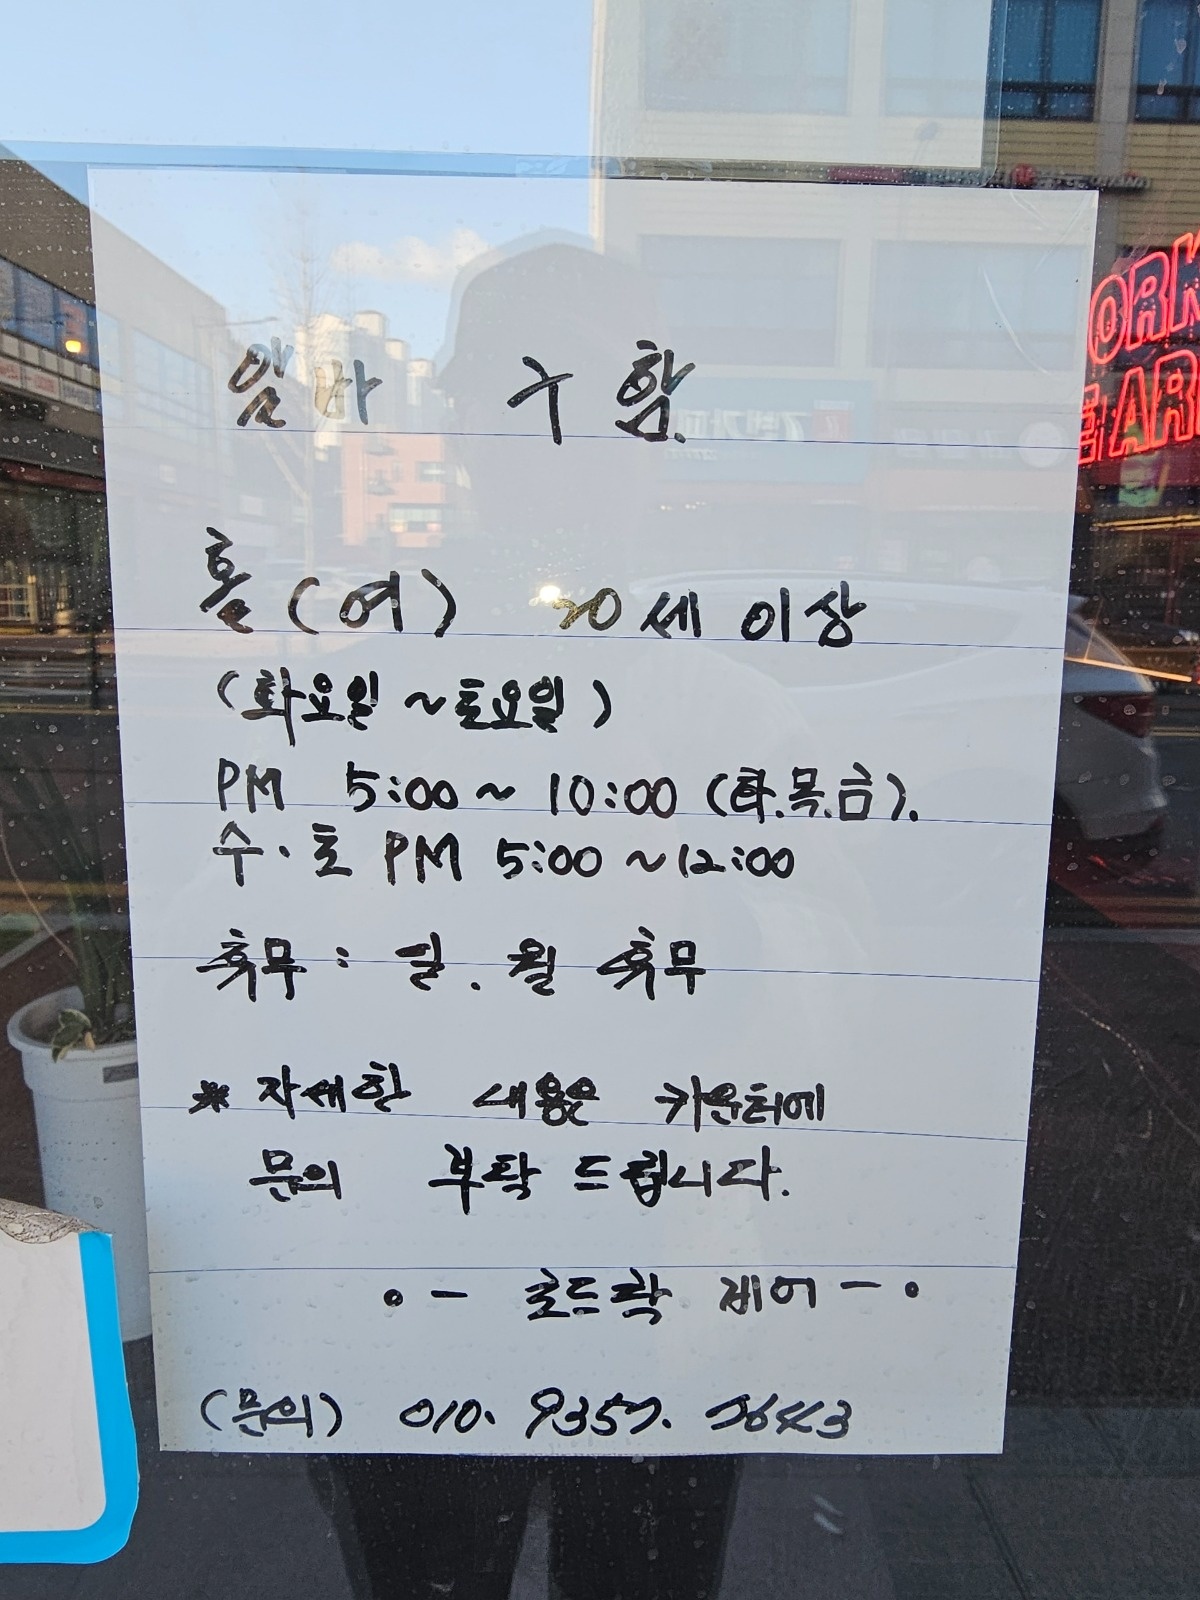 알바 구함
홀(여) 20세 이상
(화요일 ~토요일)
PM 5:00 ~ 10:00 (화.목.금).
수·토 PM 5:00 ~12:00
휴무 : 일. 월 휴무
* 자세한 내용은 카운터에
문의 부탁 드립니다.
•- 코드락 제어 -•
(문의) 010. 9357.
ORK
EAR